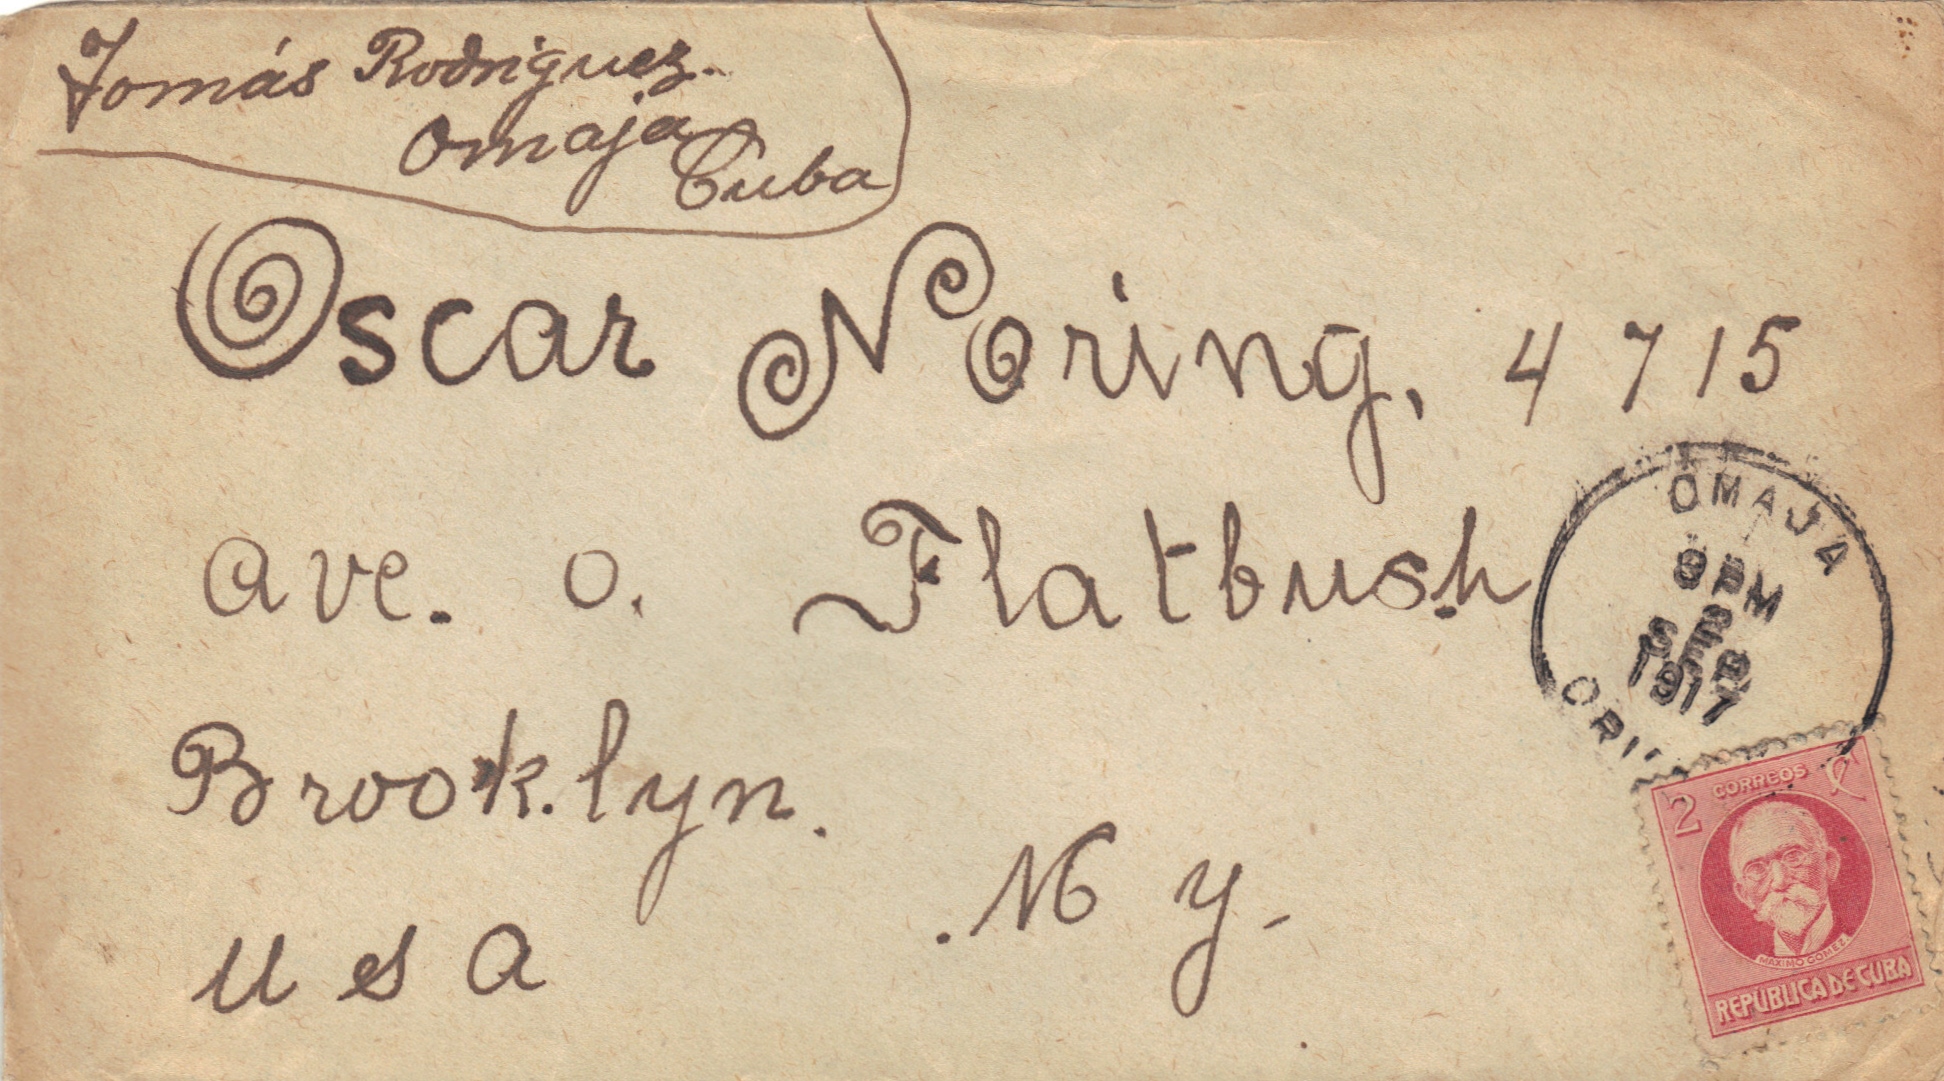 Tomás Rodriguez.
Omaja
Cuba
Oscar Noring, 4715
ave. o. Flatbush
Brooklyn.
N y.
u s a
OMAJA
PM
SEP
1917
ORI
2 CORREOS
MAXIMO GOMEZ
REPÚBLICA DE CUBA